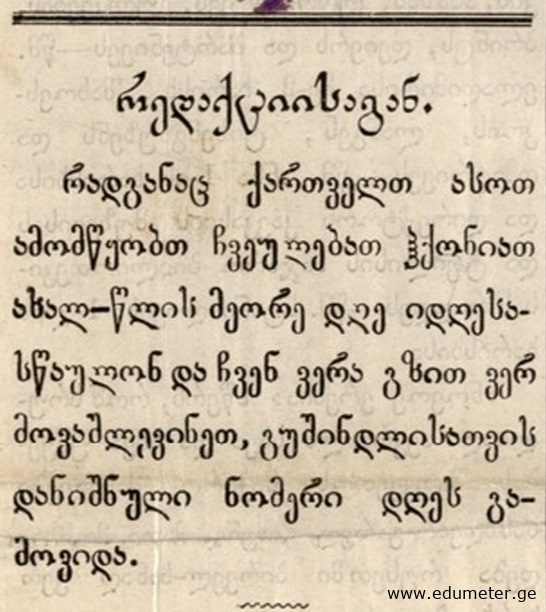 რედაქციისაგან.
რადგანაც ქართველთ ასოთ
ამომწყობთ ჩვეულებათ ჰქონიათ
ახალ-წლის მეორე დღე იდღესა-
სწაულონ და ჩვენ ვერა გზით ვერ
მოვაშლევინეთ, გუშინდლისათვის
დანიშნული ნომერი დღეს გა-
მოვიდა.
www.edumeter.ge